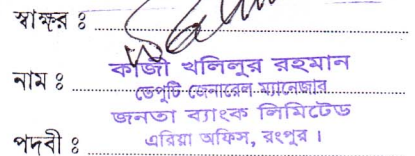 স্বাক্ষর ঃ
নাম ঃ কাজী খলিলুর রহমান
ডেপুটি জেনারেল ম্যানেজার
জনতা ব্যাংক লিমিটেড
পদবী ঃ এরিয়া অফিস, রংপুর ।